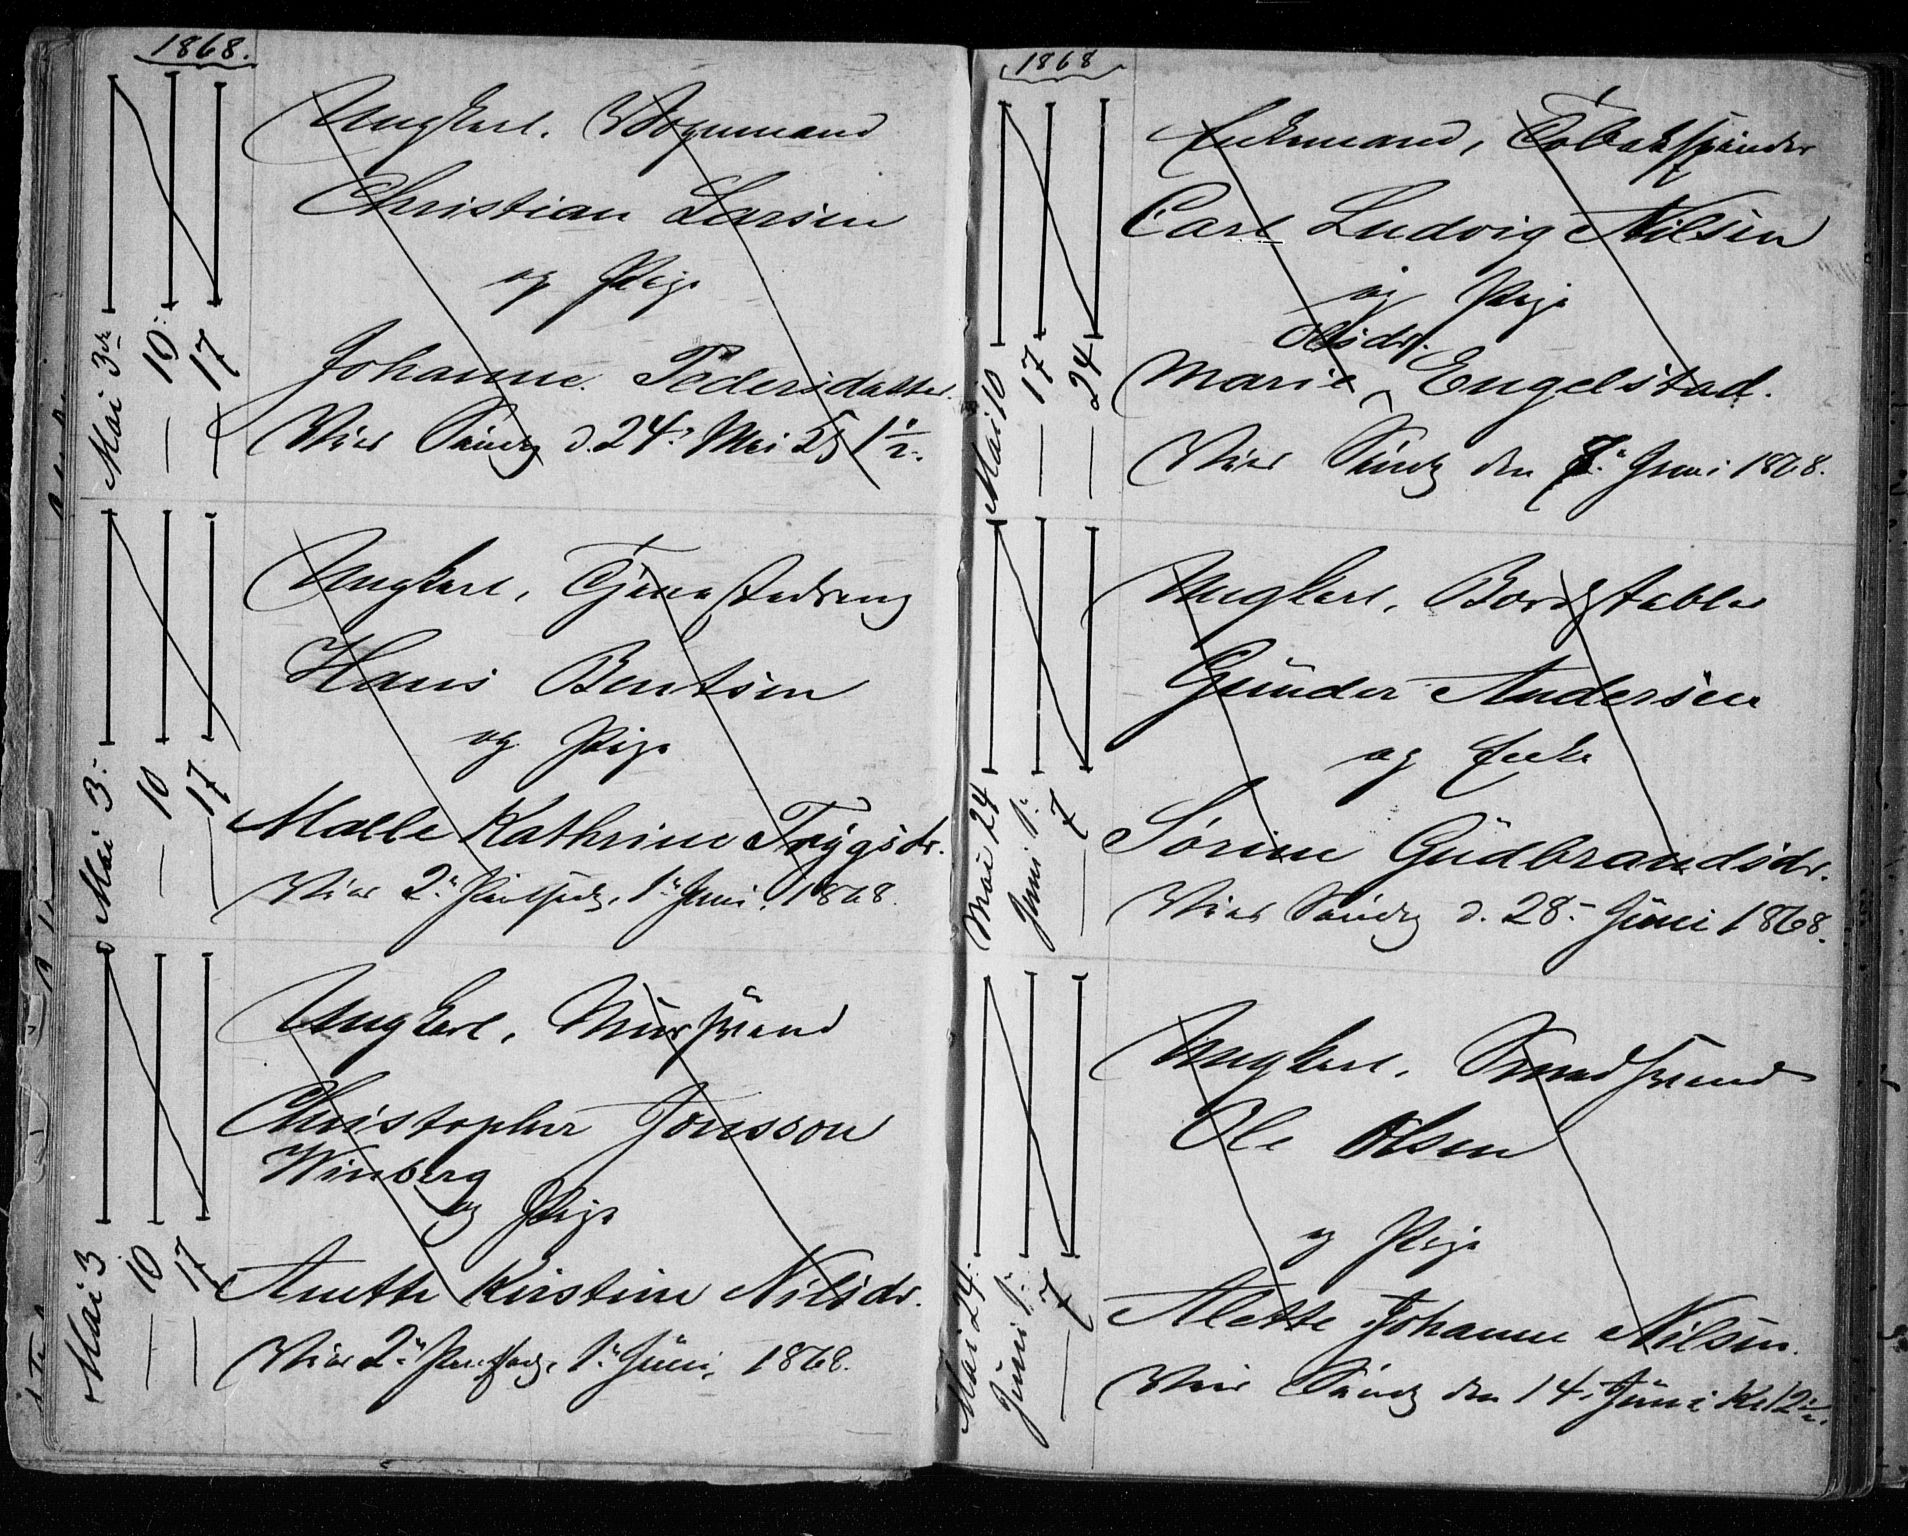 1868.
Mai 3die
— 10
— 17
Ungkarl, Vognmand
Christian Larsen
og Pige
Johanne Pedersdatter.
Vies Søndg d. 24. Mai 1½.
Mai 3.
— 10
— 17
Ungkarl, Tjenestedreng
Hans Bentsen
og Pige
Malle Kathrine Trygsdr.
Vies 2. Juni 1868.
Mai 3
— 10
— 17
Ungkarl, Mursvend
Christopher Jonsson
Winberg
og Pige
Anette Kirstine Nilsdr.
Vies 2. 1. Juni, 1868.
1868
Mai 10
— 17
— 24
Enkemand, Tobakspinder
Carl Ludvig Nilsen
og Pige
Olsdr.
Marie Engelstad.
Vies Søndg den 7. Juni 1868.
Mai 24
Juni 1.
— 7
Ungkarl, Bordstabler
Günder Andersen
og Enke
Sørine Gudbrandsdr.
Vies Søndg d. 28. Juni 1868.
Mai 24.
Juni 1.
— 7
Ungkarl, Smedsvend
Ole Olsen
og Pige
Alette Johanne Nilsen.
Vies Søndg den 14. Juni Kl 12½.